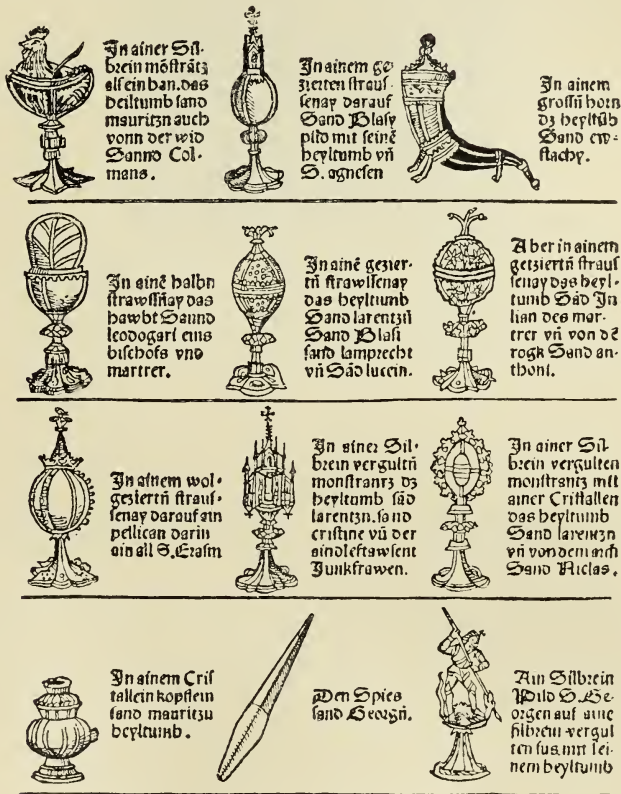 In ainer Sil-
brein mösträtz
als ein han. das
heiltumb sand
mauritzn auch
vonn der wid
Sannd Col-
mans.
In ainem ge
zierten straus-
senay darauf
Sand Blasy
pild mit seinē
heyltumb vñ
S. agnesen
In ainem
grossñ horn
dz heyltūb
Sand ew-
stachy.
In ainē halbn
strawssñay das
hawbt Sannd
leodogari eins
bischofs vnd
martrer.
In ainē gezier-
tñ strawssenay
das heyltumb
Sand larentzñ
Sand Blasi
sand lamprecht
vñ Sād lucein.
Aber in ainem
getziertñ straus
senay das heyl-
tumb Sād Ju
lian des mar-
trer vñ von dē
rogk Sand an-
thoni.
In ainem wol-
geziertñ straus-
senay darauf ain
pellican darin
ain all S. Erasm
In ainer Sil-
brein vergultñ
monstrantz dz
heyltumb sād
larentzn. sand
cristine vñ der
aindleftawsent
Junkfrawen.
In ainer Sil-
brein vergulten
monstrantz mit
ainer Cristallen
das heyltumb
Sand larentzn
vñ von dem arm
Sand Niclas.
In ainem Cris
tallein kopflein
sand mauritzn
heyltumb.
Den Spies
sand Georgñ.
Ain Silbrein
Pild S. Ge-
orgen auf aine
silbrein vergul
ten fus mit sei-
nem heyltumb